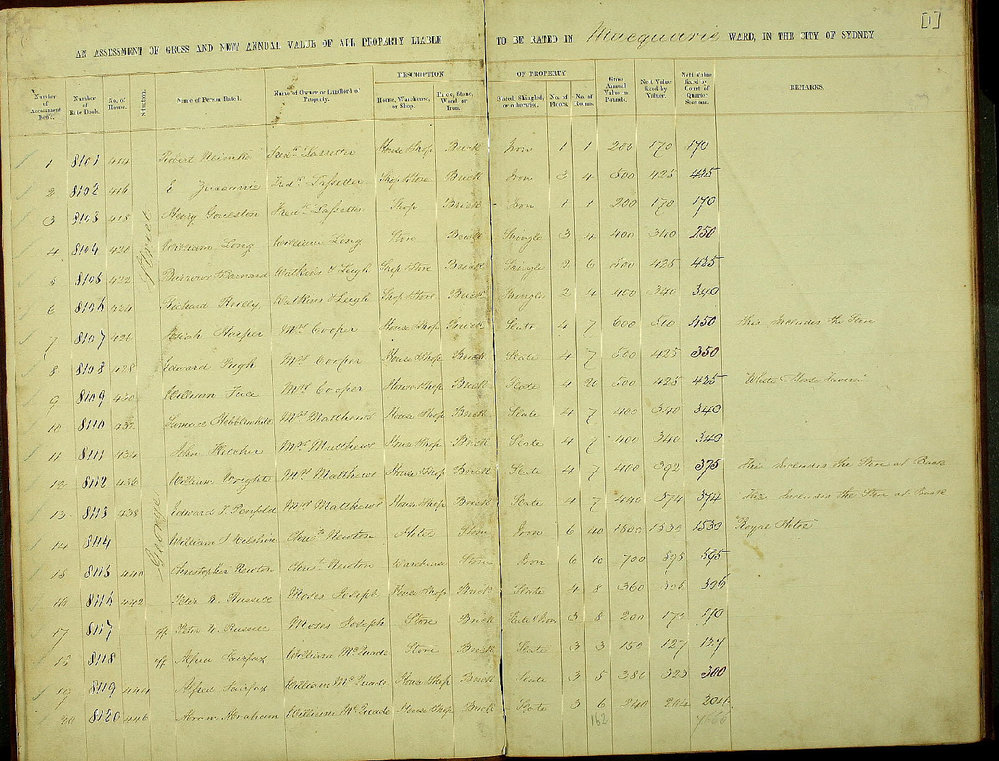 [1]
AN ASSESSMENT OF GROSS AND NETT ANNUAL VALUE OF ALL PROPERTY LIABLE TO BE RATED IN Macquarie WARD, IN THE CITY OF SYDNEY
DESCRIPTION OF PROPERTY
Number of Assessment Book. Number of Rate Book. No. of House. Situation. Name of Person Rated. Name of Owner or Landlord of Property. House, Warehouse, or Shop. Brick, Stone, Wood or Iron. Slated, Shingled, No. of Floors. No. of Rooms. Gross Annual Value in Pounds. Nett Value fixed by Valuer. Nett Value fixed by Court of Quarter Sessions. REMARKS.
George Street
1 8101 414 Fredk Lassetter House Shop Brick Iron 1 1 200 170 170
2 8102 416 E Fredk Lassetter Shop Store Brick Iron 3 4 500 425 425
3 8103 418 Henry Goulston Fredk Lassetter Shop Brick Iron 1 1 200 170 170
4 8104 420 William Long William Long Store Brick Shingle 3 4 400 340 250
5 8105 422 Barnard Watkins & Leigh Shop Store Brick Shingle 2 6 500 425 425
6 8106 424 Richard Reilly Watkins & Leigh Shop Store Brick Shingle 2 4 400 340 340
7 8107 426 Hooper Mrs Cooper House Shop Brick Slate 4 7 600 510 450 this Includes the Store
8 8108 428 Edward Pugh Mrs Cooper House Shop Brick Slate 4 7 500 425 350
9 8109 430 William Mrs Cooper House Shop Brick Slate 4 20 500 425 425 White Horse Tavern
10 8110 432 Samuel Mrs Matthews House Shop Brick Slate 4 7 400 340 340
11 8111 434 John Fletcher Mrs Matthews House Shop Brick Slate 4 7 400 340 340
12 8112 436 William Wright Mrs Matthews House Shop Brick Slate 4 7 460 392 375 this Includes the Store at Back
13 8113 438 Edward T. Penfold Mrs Matthews House Shop Brick Slate 4 7 440 374 374 this Includes the Store at Back
14 8114 William J. Chrisr Newton Hotel Stone Iron 6 40 1800 1530 1530 Royal Hotel
15 8115 440 Christopher Newton Chrisr Newton Warehouse Stone Iron 6 10 700 595 595
16 8116 442 Peter N. Russell Moses Joseph House Shop Brick Slate 4 8 360
17 8117 off Peter N. Russell Moses Joseph Store Brick Slate & Iron 3 8 200 170 170
18 8118 off Alfred Fairfax William McQuade Store Brick Slate 3 3 150 127 127
19 8119 444 Alfred Fairfax William McQuade House Shop Brick Slate 3 5 380 323 300
20 8120 446 Abram Abraham William McQuade House Shop Brick Slate 3 6 240 204 204
162